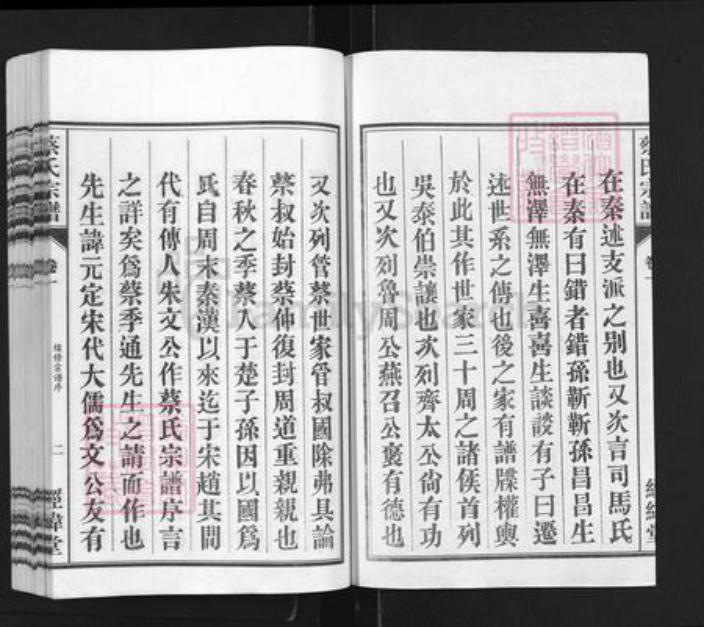 在秦述支派之别也又次言司馬氏
在秦有曰錯者錯孫靳靳孫昌昌生
無澤無澤生喜喜生談談有子曰遷
述世系之傳也後之家有譜牒權輿
於此其作世家三十周之諸侯首列
吳泰伯崇讓也次列齊太公尙有功
也又次列魯周公燕召公褒有德也
又次列管蔡世家管叔國除弗具論
蔡叔始封蔡仲復封周道重親親也
春秋之季蔡入于楚子孫因以國爲
氏自周末秦漢以來迄于宋趙其間
代有傳人朱文公作蔡氏宗譜序言
之詳矣爲蔡季通先生之請而作也
先生諱元定宋代大儒爲文公友有
蔡氏宗譜
卷一
二
經緯堂
FamilySearch